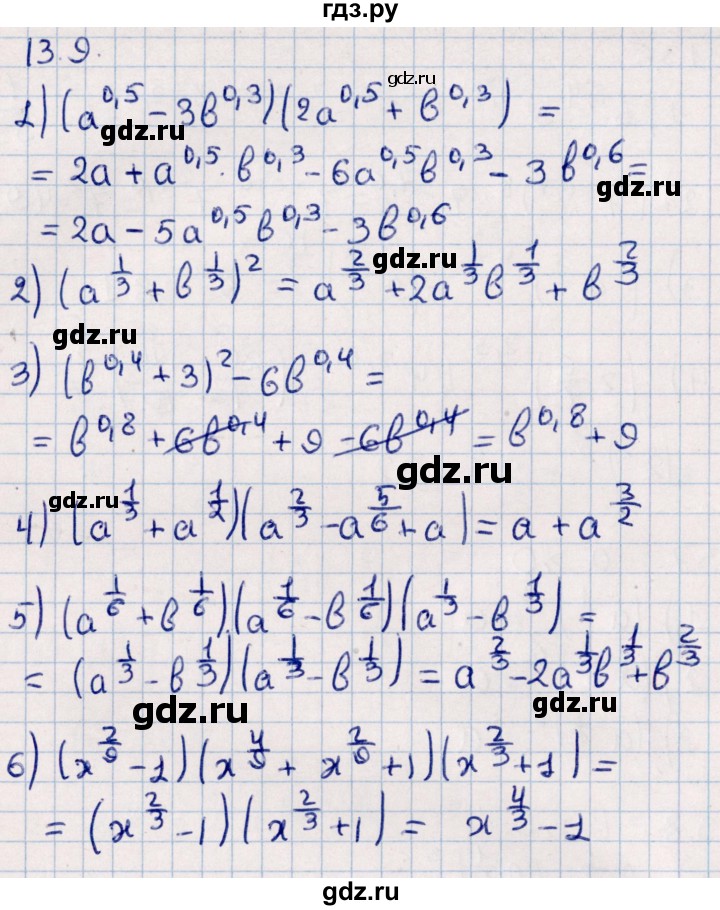 гдз.ру
13.9.
gdz.ru
1) (a^{0,5} - 3b^{0,3})(2a^{0,5} + b^{0,3}) =
gdz.ru
= 2a + a^{0,5} · b^{0,3} - 6a^{0,5}b^{0,3} - 3b^{0,6} =
gdz.ru
= 2a - 5a^{0,5}b^{0,3} - 3b^{0,6}
gdz.ru
2) (a^{1/3} + b^{1/3})^2 = a^{2/3} + 2a^{1/3}b^{1/3} + b^{2/3}
gdz.ru
3) (b^{0,4} + 3)^2 - 6b^{0,4} =
= b^{0,8} + 6b^{0,4} + 9 - 6b^{0,4} = b^{0,8} + 9
gdz.ru
gdz.ru
4) (a^{1/3} + a^{1/2})(a^{2/3} - a^{5/6} + a) = a + a^{3/2}
5) (a^{1/6} + b^{1/6})(a^{1/6} - b^{1/6})(a^{1/3} - b^{1/3}) =
= (a^{1/3} - b^{1/3})(a^{1/3} - b^{1/3}) = a^{2/3} - 2a^{1/3}b^{1/3} + b^{2/3}
gdz.ru
gdz.ru
6) (x^{2/9} - 1)(x^{4/9} + x^{2/9} + 1)(x^{2/3} + 1) =
= (x^{2/3} - 1)(x^{2/3} + 1) = x^{4/3} - 1
gdz.ru